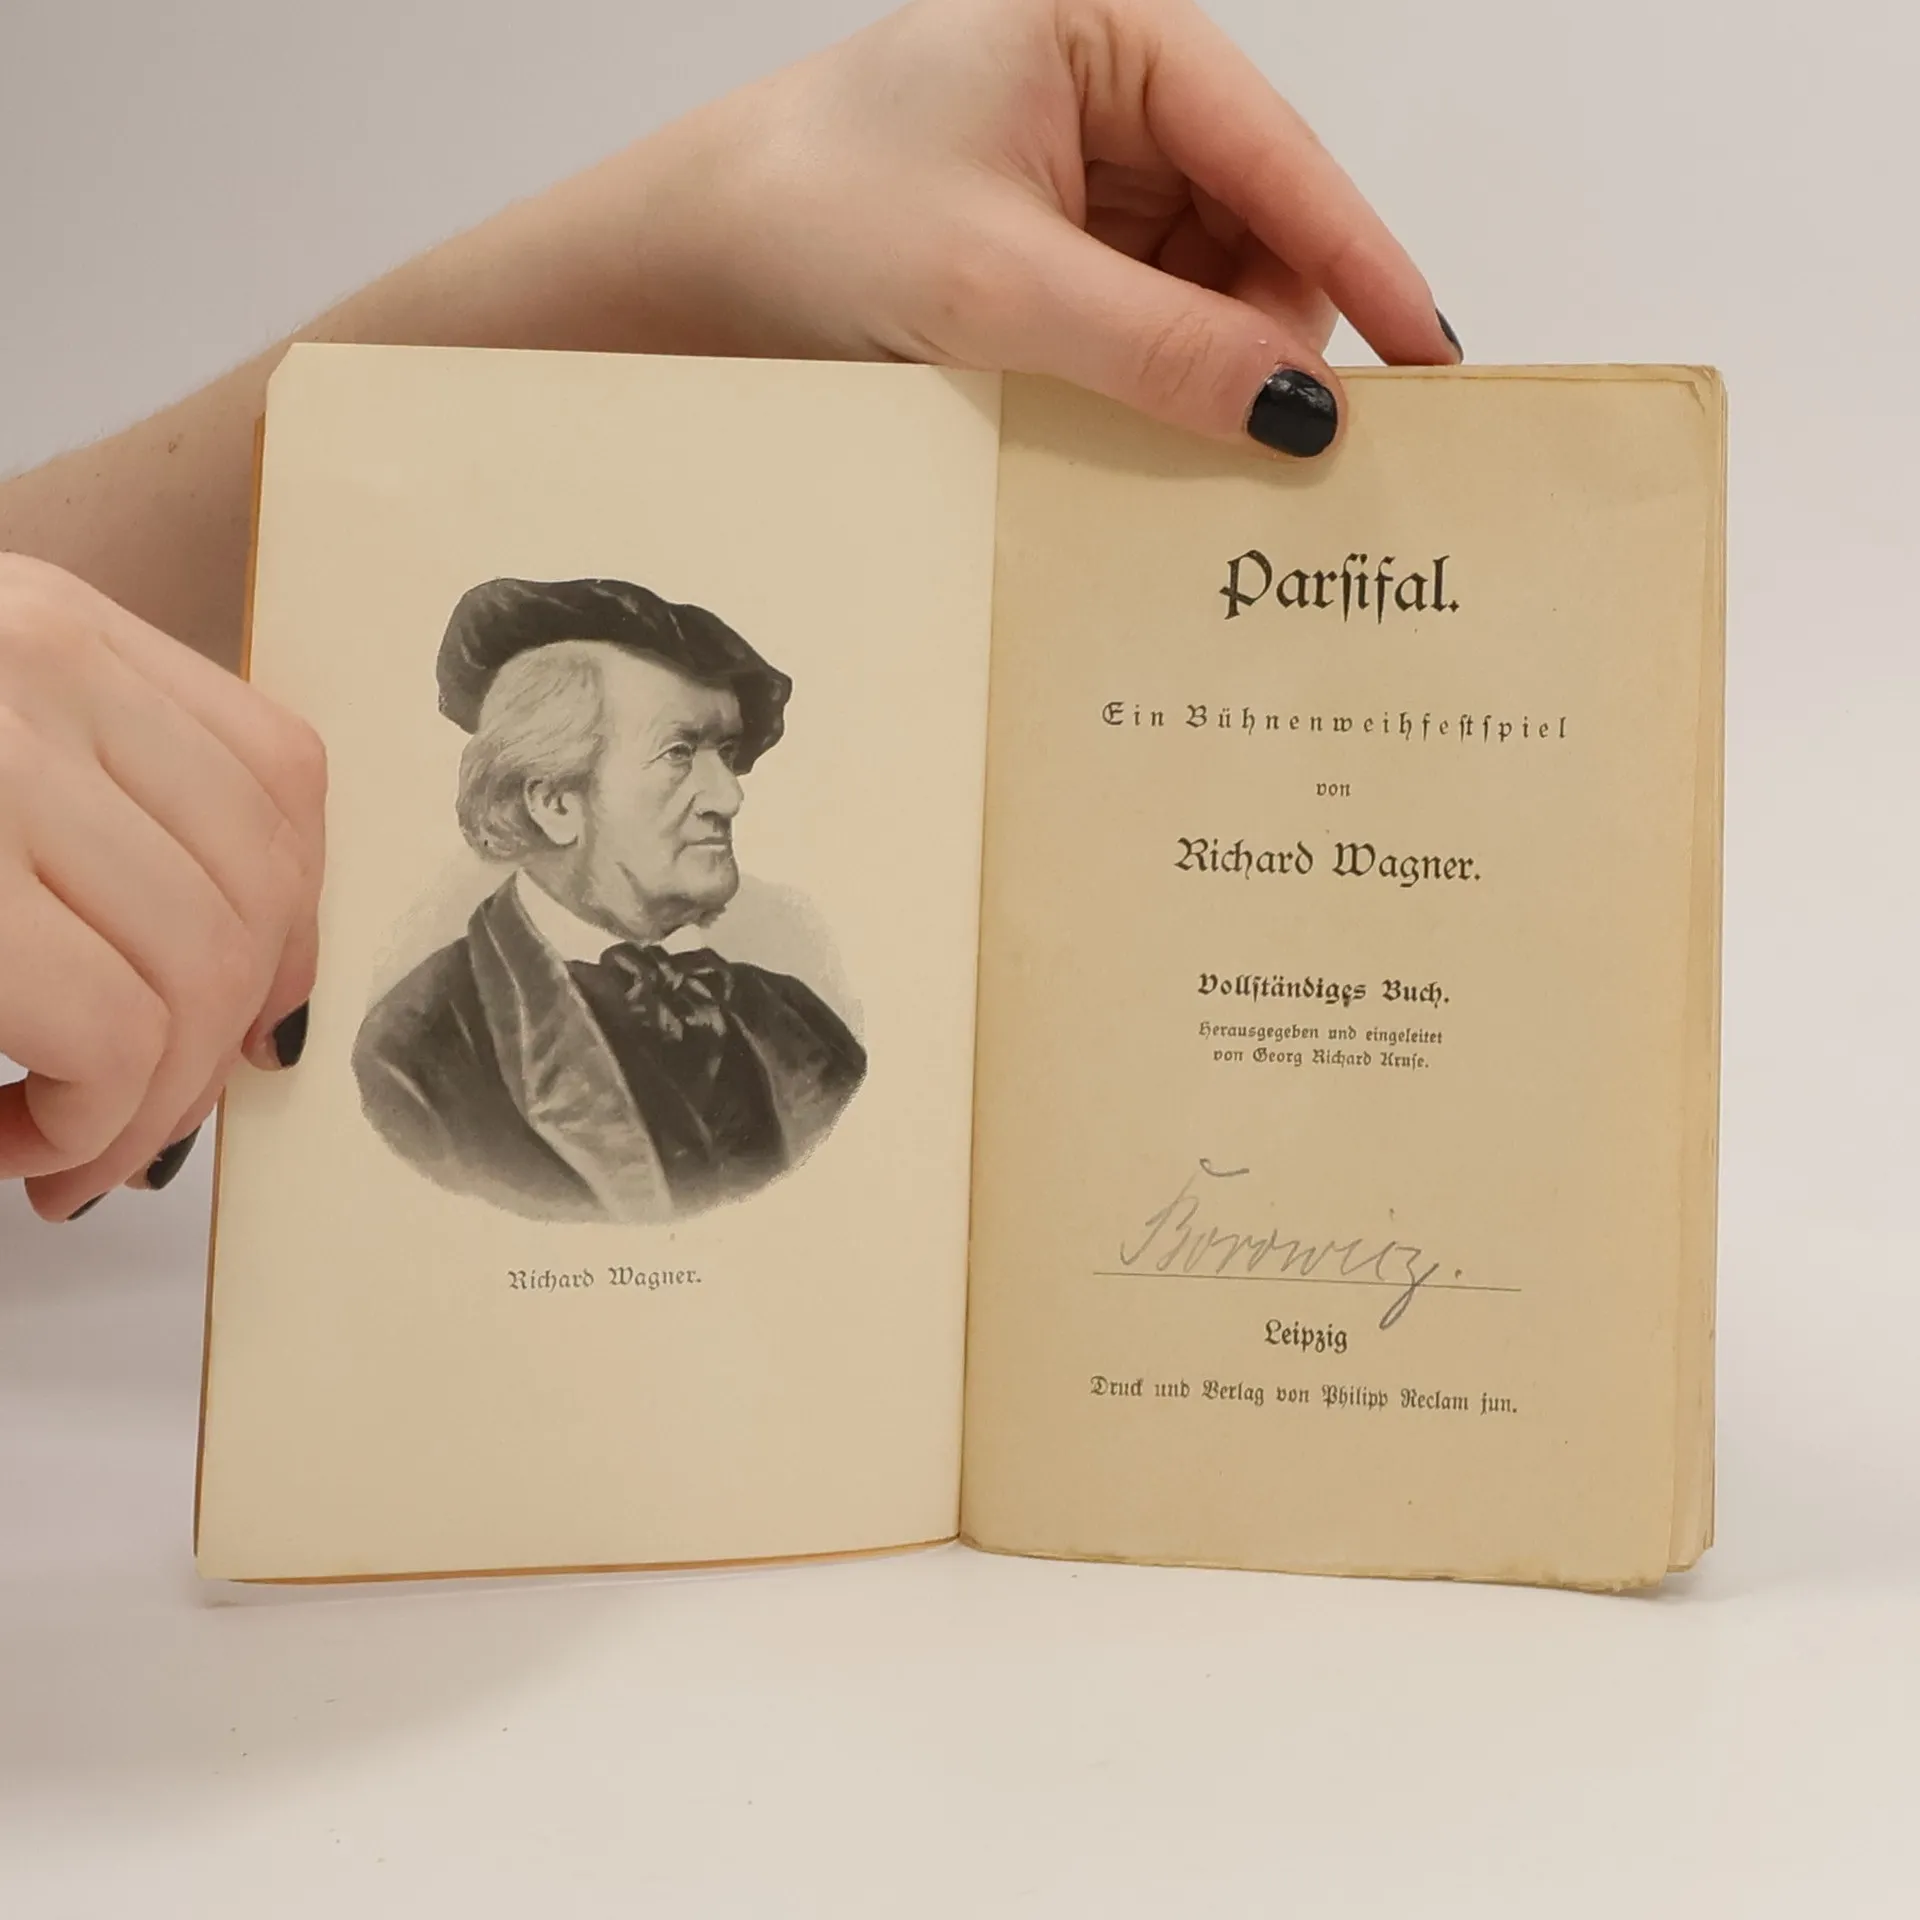 Richard Wagner.
Parsifal.
Ein Bühnenweihfestspiel
von
Richard Wagner.
Vollständiges Buch.
Herausgegeben und eingeleitet
von Georg Richard Kruse.
Borowicz.
Leipzig
Druck und Verlag von Philipp Reclam jun.